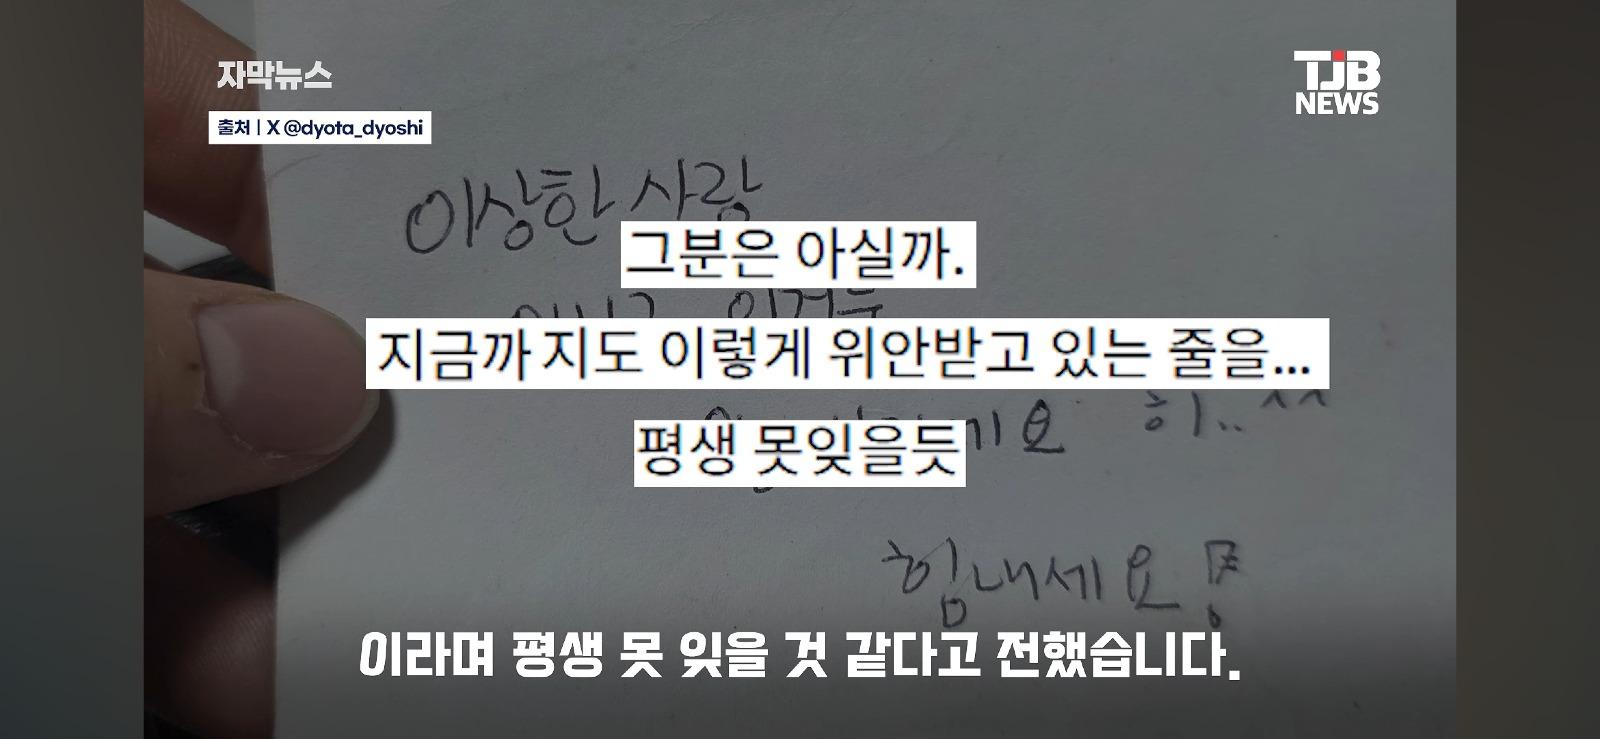 자막뉴스
TJB
NEWS
출처 | X @dyota_dyoshi
이상한 사랑
그분은 아실까.
지금까지도 이렇게 위안받고 있는 줄을...
히..^^
평생 못잊을듯
힘내세요!
이라며 평생 못 잊을 것 같다고 전했습니다.